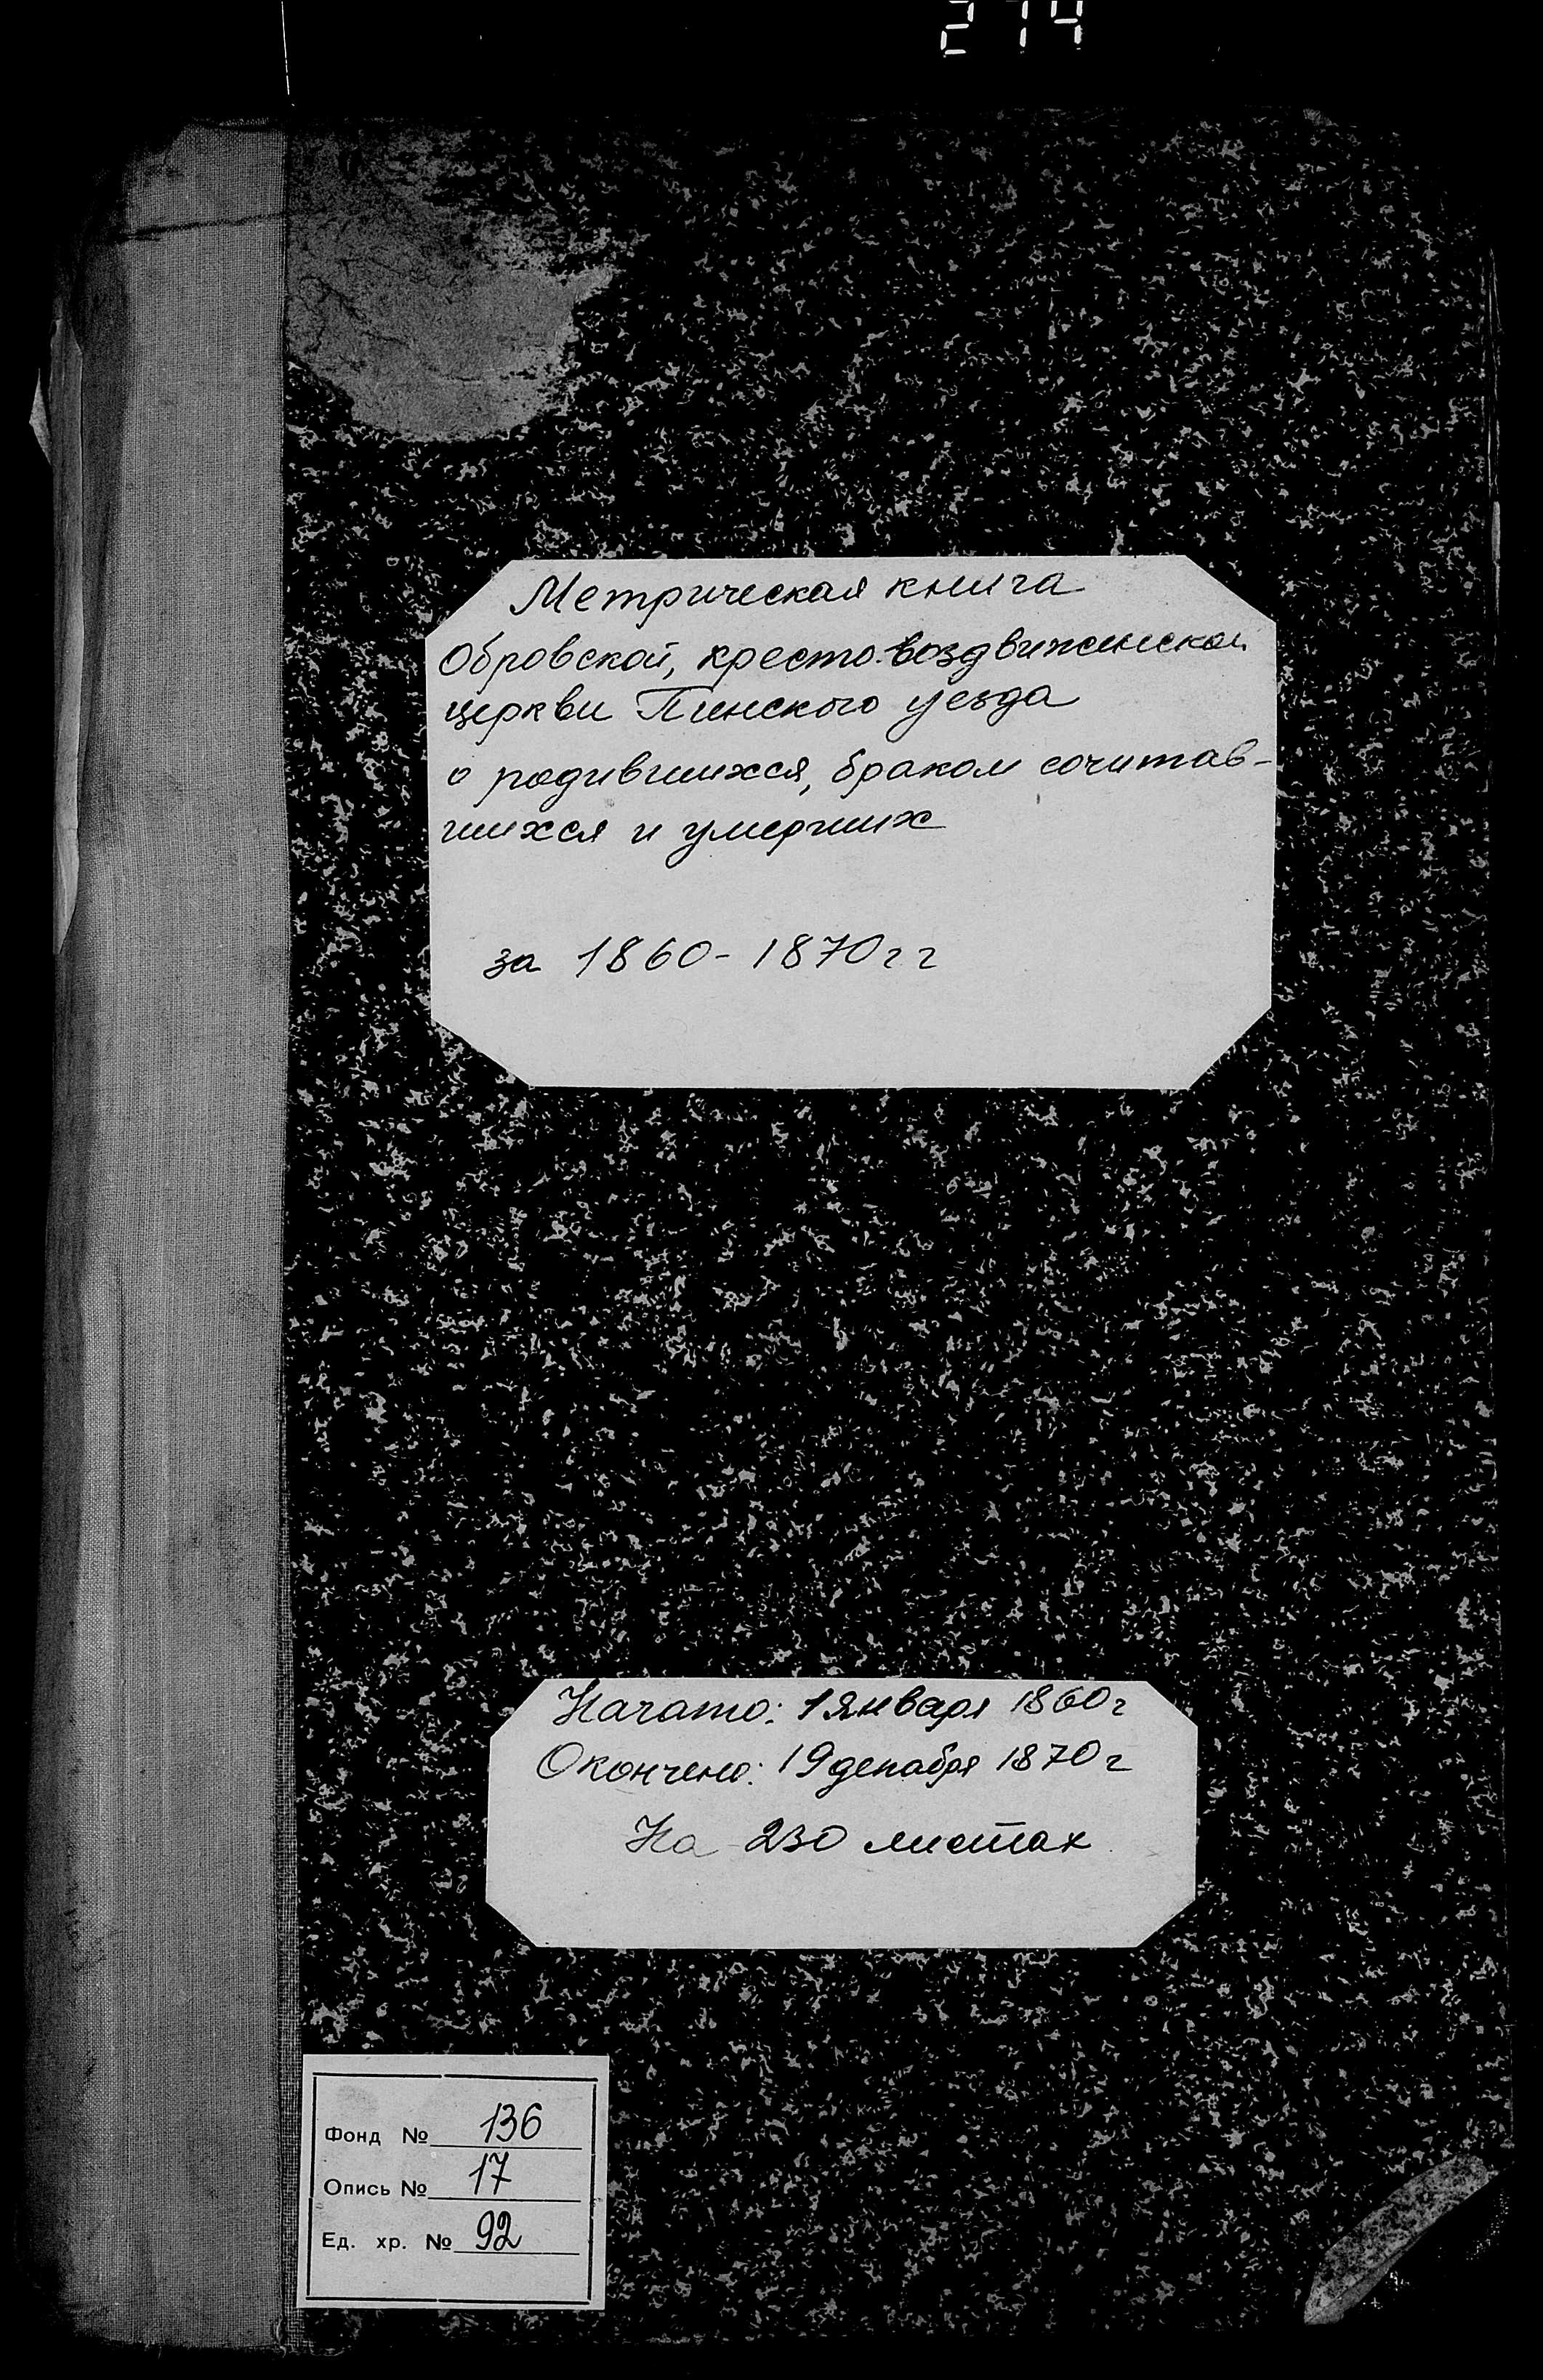 214
Метрическая книга
Обровской, кресто-воздвиженской
церкви Пинского уезда
о родившихся, браком сочитав-
шихся и умерших
за 1860-1870гг
Начато: 1 января 1860г
Окончено: 19 декабря 1870г
На 230 листах
Фонд № 136
Опись № 17
Ед. хр. № 92